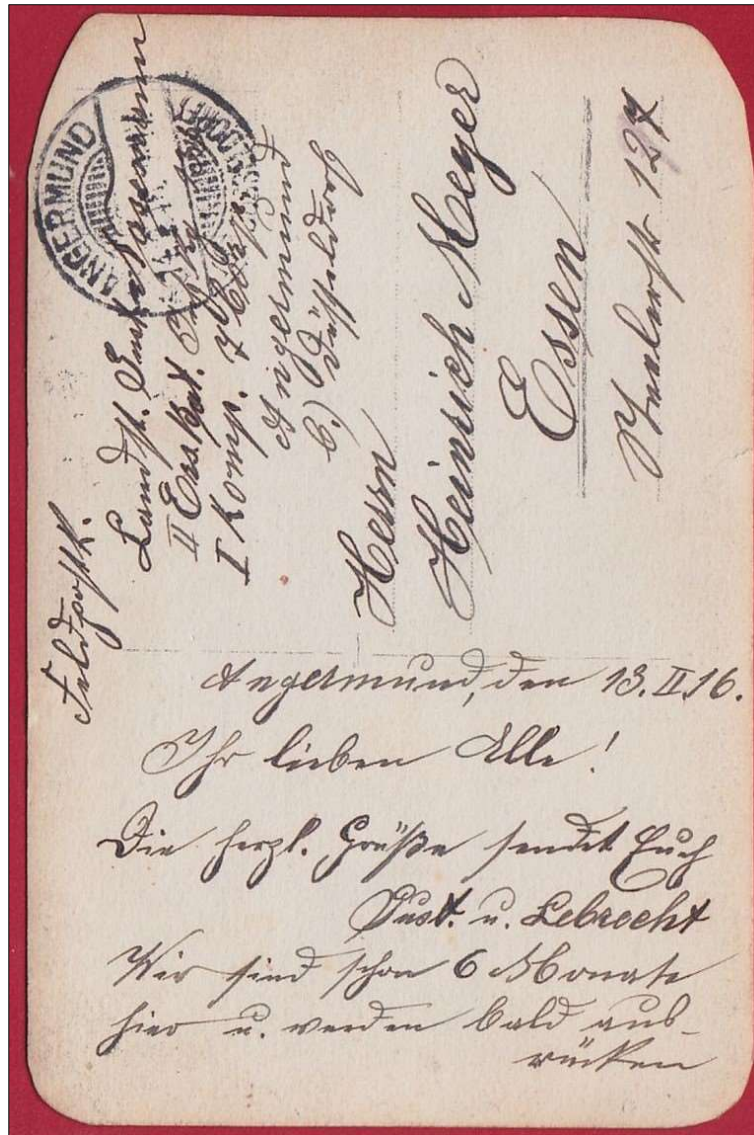 Feldpostk.
Landst.
II Ers. Bat.
I Komp.
Angermund
(b/ Düsseldorf
ANGERMUND
Herrn
Heinrich Meyer
Essen
127
Angermund, den 13.II.16.
Ihr lieben Alle!
Die herzl. Grüße sendet Euch
Gust. u. Lebrecht
Wir sind schon 6 Monate
hier u. werden bald aus-
rücken